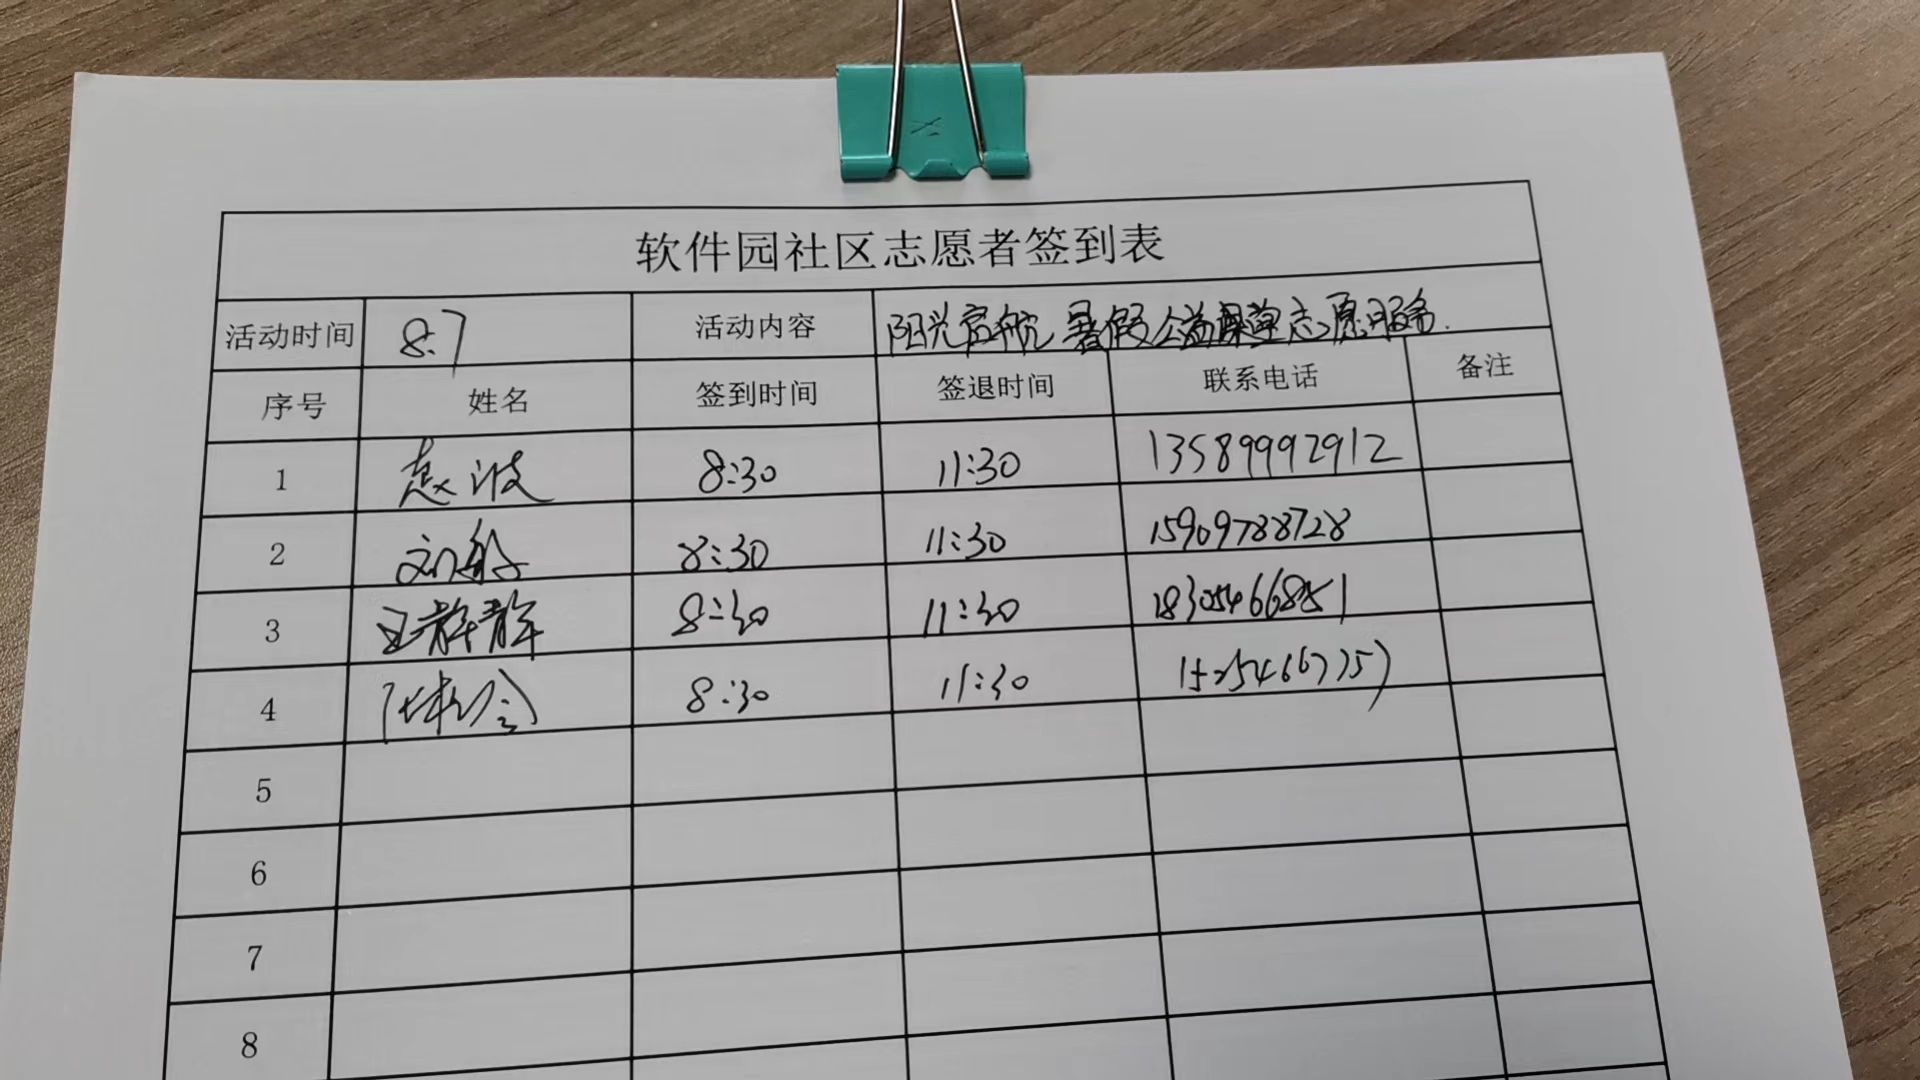 软件园社区志愿者签到表
活动时间 8.7 活动内容 阳光启航 暑假公益课堂志愿服务.
序号 姓名 签到时间 签退时间 联系电话 备注
1 惠波 8:30 11:30 13589992912
2 刘船 8:30 11:30 15909788728
3 王静静 8:30 11:30 18305466851
4 8:30 11:30
5
6
7
8